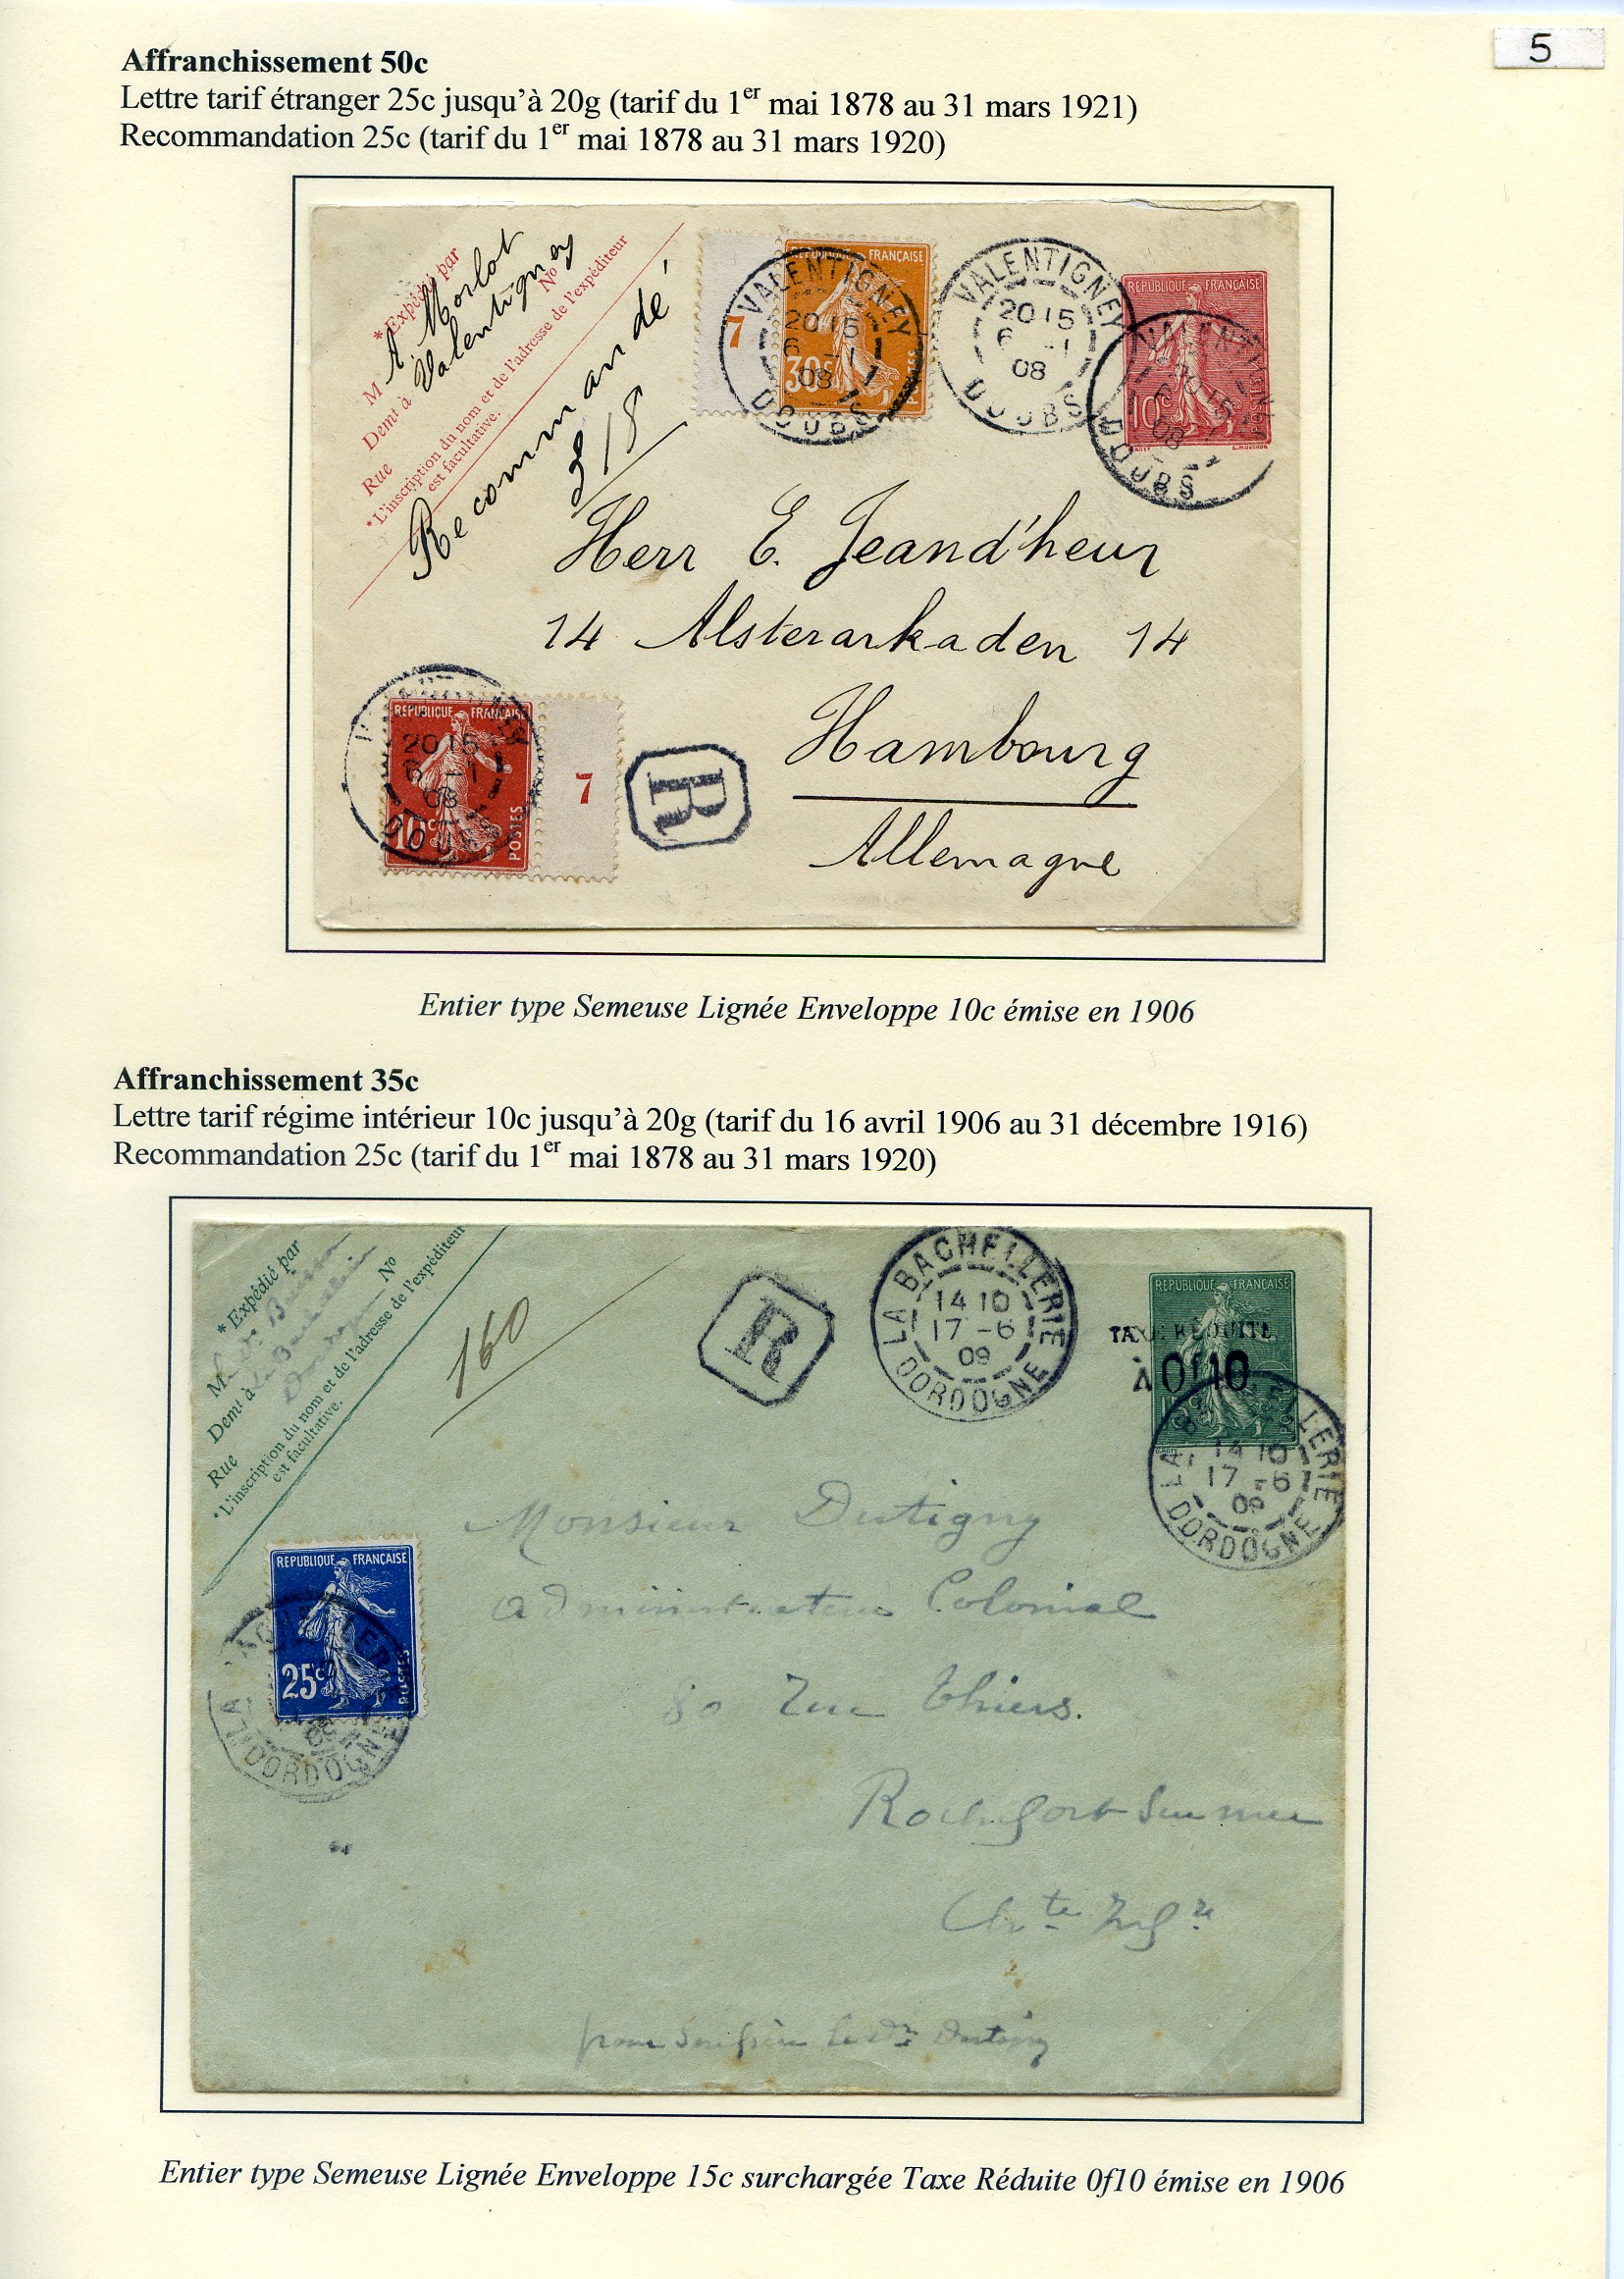 5
Affranchissement 50c
Lettre tarif étranger 25c jusqu'à 20g (tarif du 1er mai 1878 au 31 mars 1921)
Recommandation 25c (tarif du 1er mai 1878 au 31 mars 1920)
*Expédié par
M A. Morlot
Demt à Valentigney
Rue Nº
*L'inscription du nom et de l'adresse de l'expéditeur
est facultative.
Recommandé
218
7
REPUBLIQUE FRANÇAISE
30c
VALENTIGNEY
20 15
6 -1
08
DOUBS
VALENTIGNEY
20 15
6 -1
08
DOUBS
REPUBLIQUE FRANÇAISE
10c
POSTES
20 15
08
DOUBS
Herr E. Jeand'heur
14 Alsterarkaden 14
Hambourg
Allemagne
REPUBLIQUE FRANÇAISE
10c
POSTES
20 15
6 -1
08
DOUBS
7
R
Entier type Semeuse Lignée Enveloppe 10c émise en 1906
Affranchissement 35c
Lettre tarif régime intérieur 10c jusqu'à 20g (tarif du 16 avril 1906 au 31 décembre 1916)
Recommandation 25c (tarif du 1er mai 1878 au 31 mars 1920)
*Expédié par
M
Demt à La Bachellerie
Rue Nº
*L'inscription du nom et de l'adresse de l'expéditeur
est facultative.
160
R
LA BACHELLERIE
14 10
17 -6
09
DORDOGNE
REPUBLIQUE FRANÇAISE
TAXE RÉDUITE
À 0f10
14 10
17 -6
09
DORDOGNE
Monsieur Dutigny
administrateur Colonial
80 Rue Thiers.
Rochefort sur mer
Chte Infre
REPUBLIQUE FRANÇAISE
25c
POSTES
DORDOGNE
Entier type Semeuse Lignée Enveloppe 15c surchargée Taxe Réduite 0f10 émise en 1906